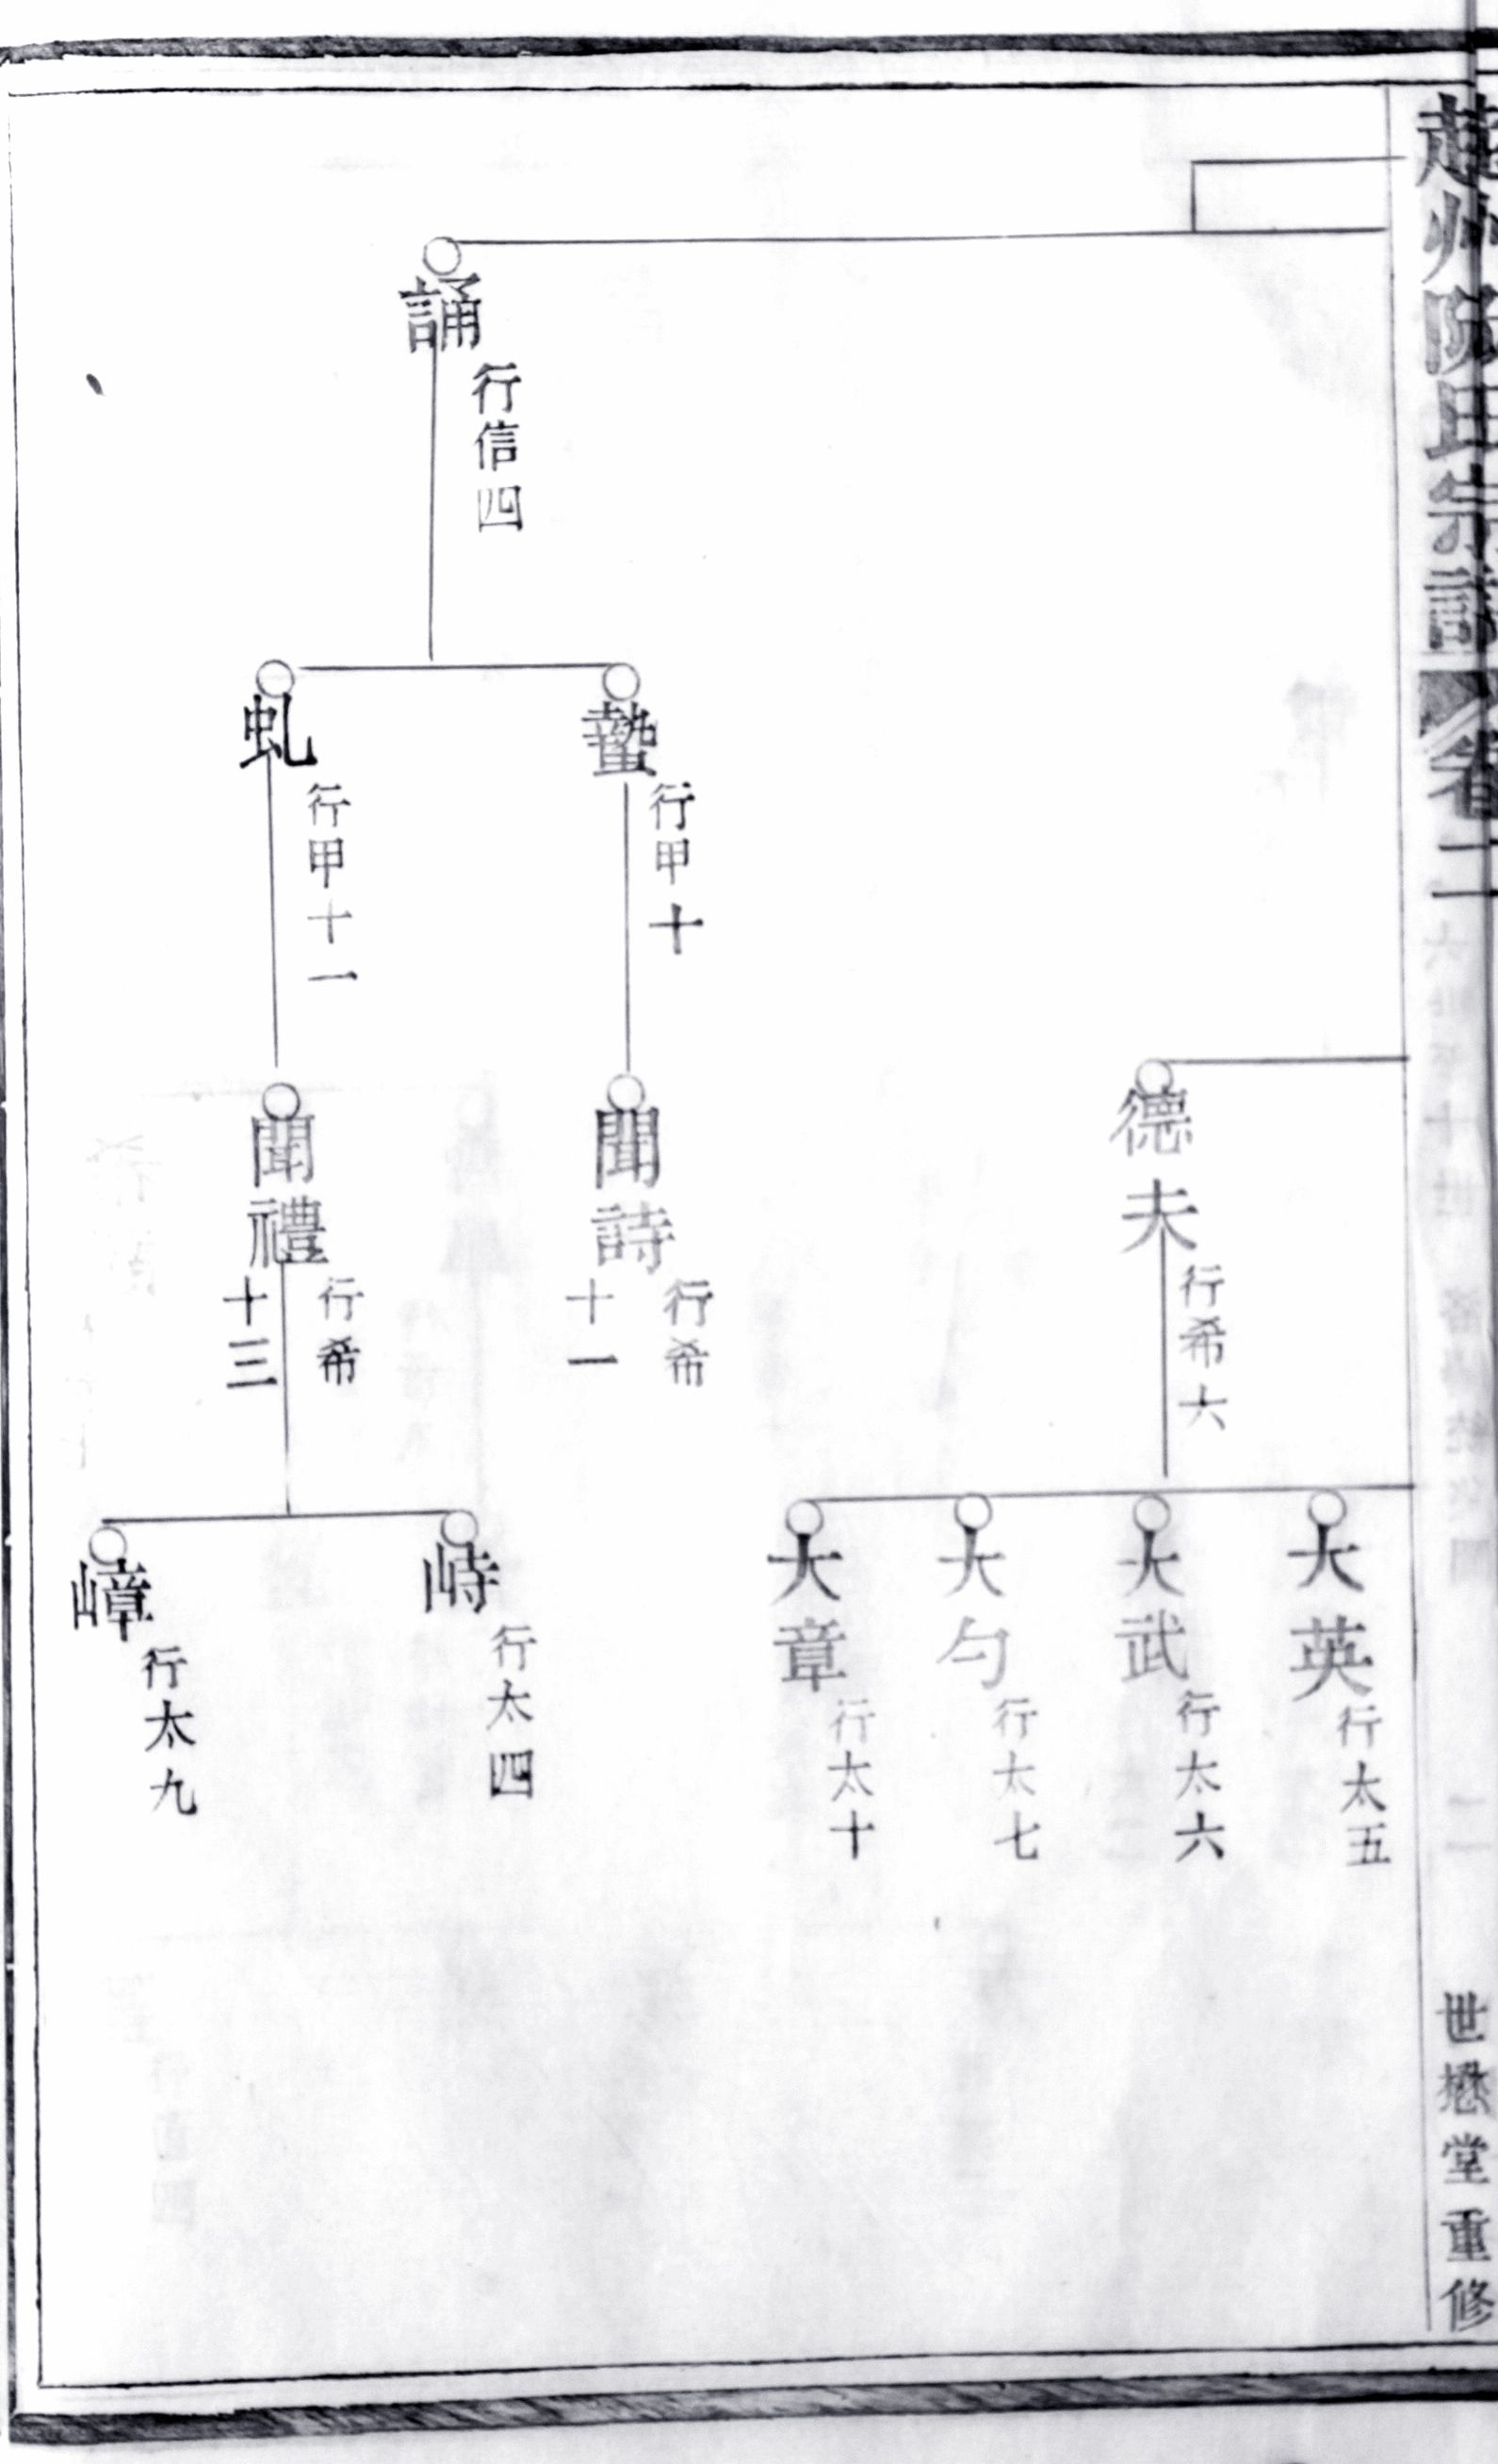 氏宗譜
卷二
世懋堂重修
誦
行信四
蟄
行甲十
虬
行甲十一
德夫
行希六
聞詩
行希
十一
聞禮
行希
十三
大英
行太五
大武
行太六
大勻
行太七
大章
行太十
峙
行太四
嶂
行太九